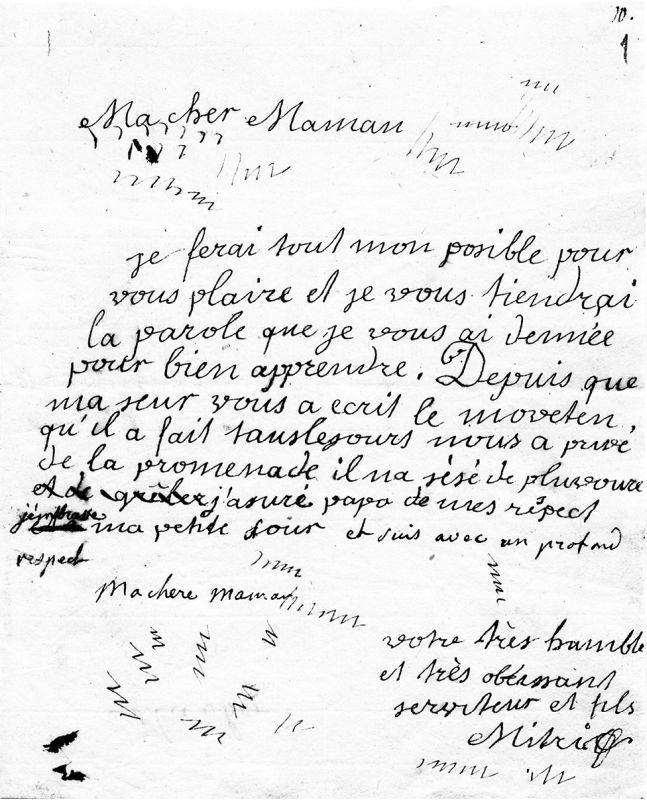 10.
1
Macher Maman
je ferai tout mon posible pour
vous plaire et je vous tiendrai
la parole que je vous ai dennée
pour bien apprendre. Depuis que
ma seur vous a ecrit le moveten,
qu'il a fait tauslesours nous a privé
de la promenade il na sésé de pluvoure
et de grêler j'asuré papa de mes respect
j'embrasse ma petite sour et suis avec un profond
respect
Machere maman
votre très humble
et très obeissant
serviteur et fils
Mitri